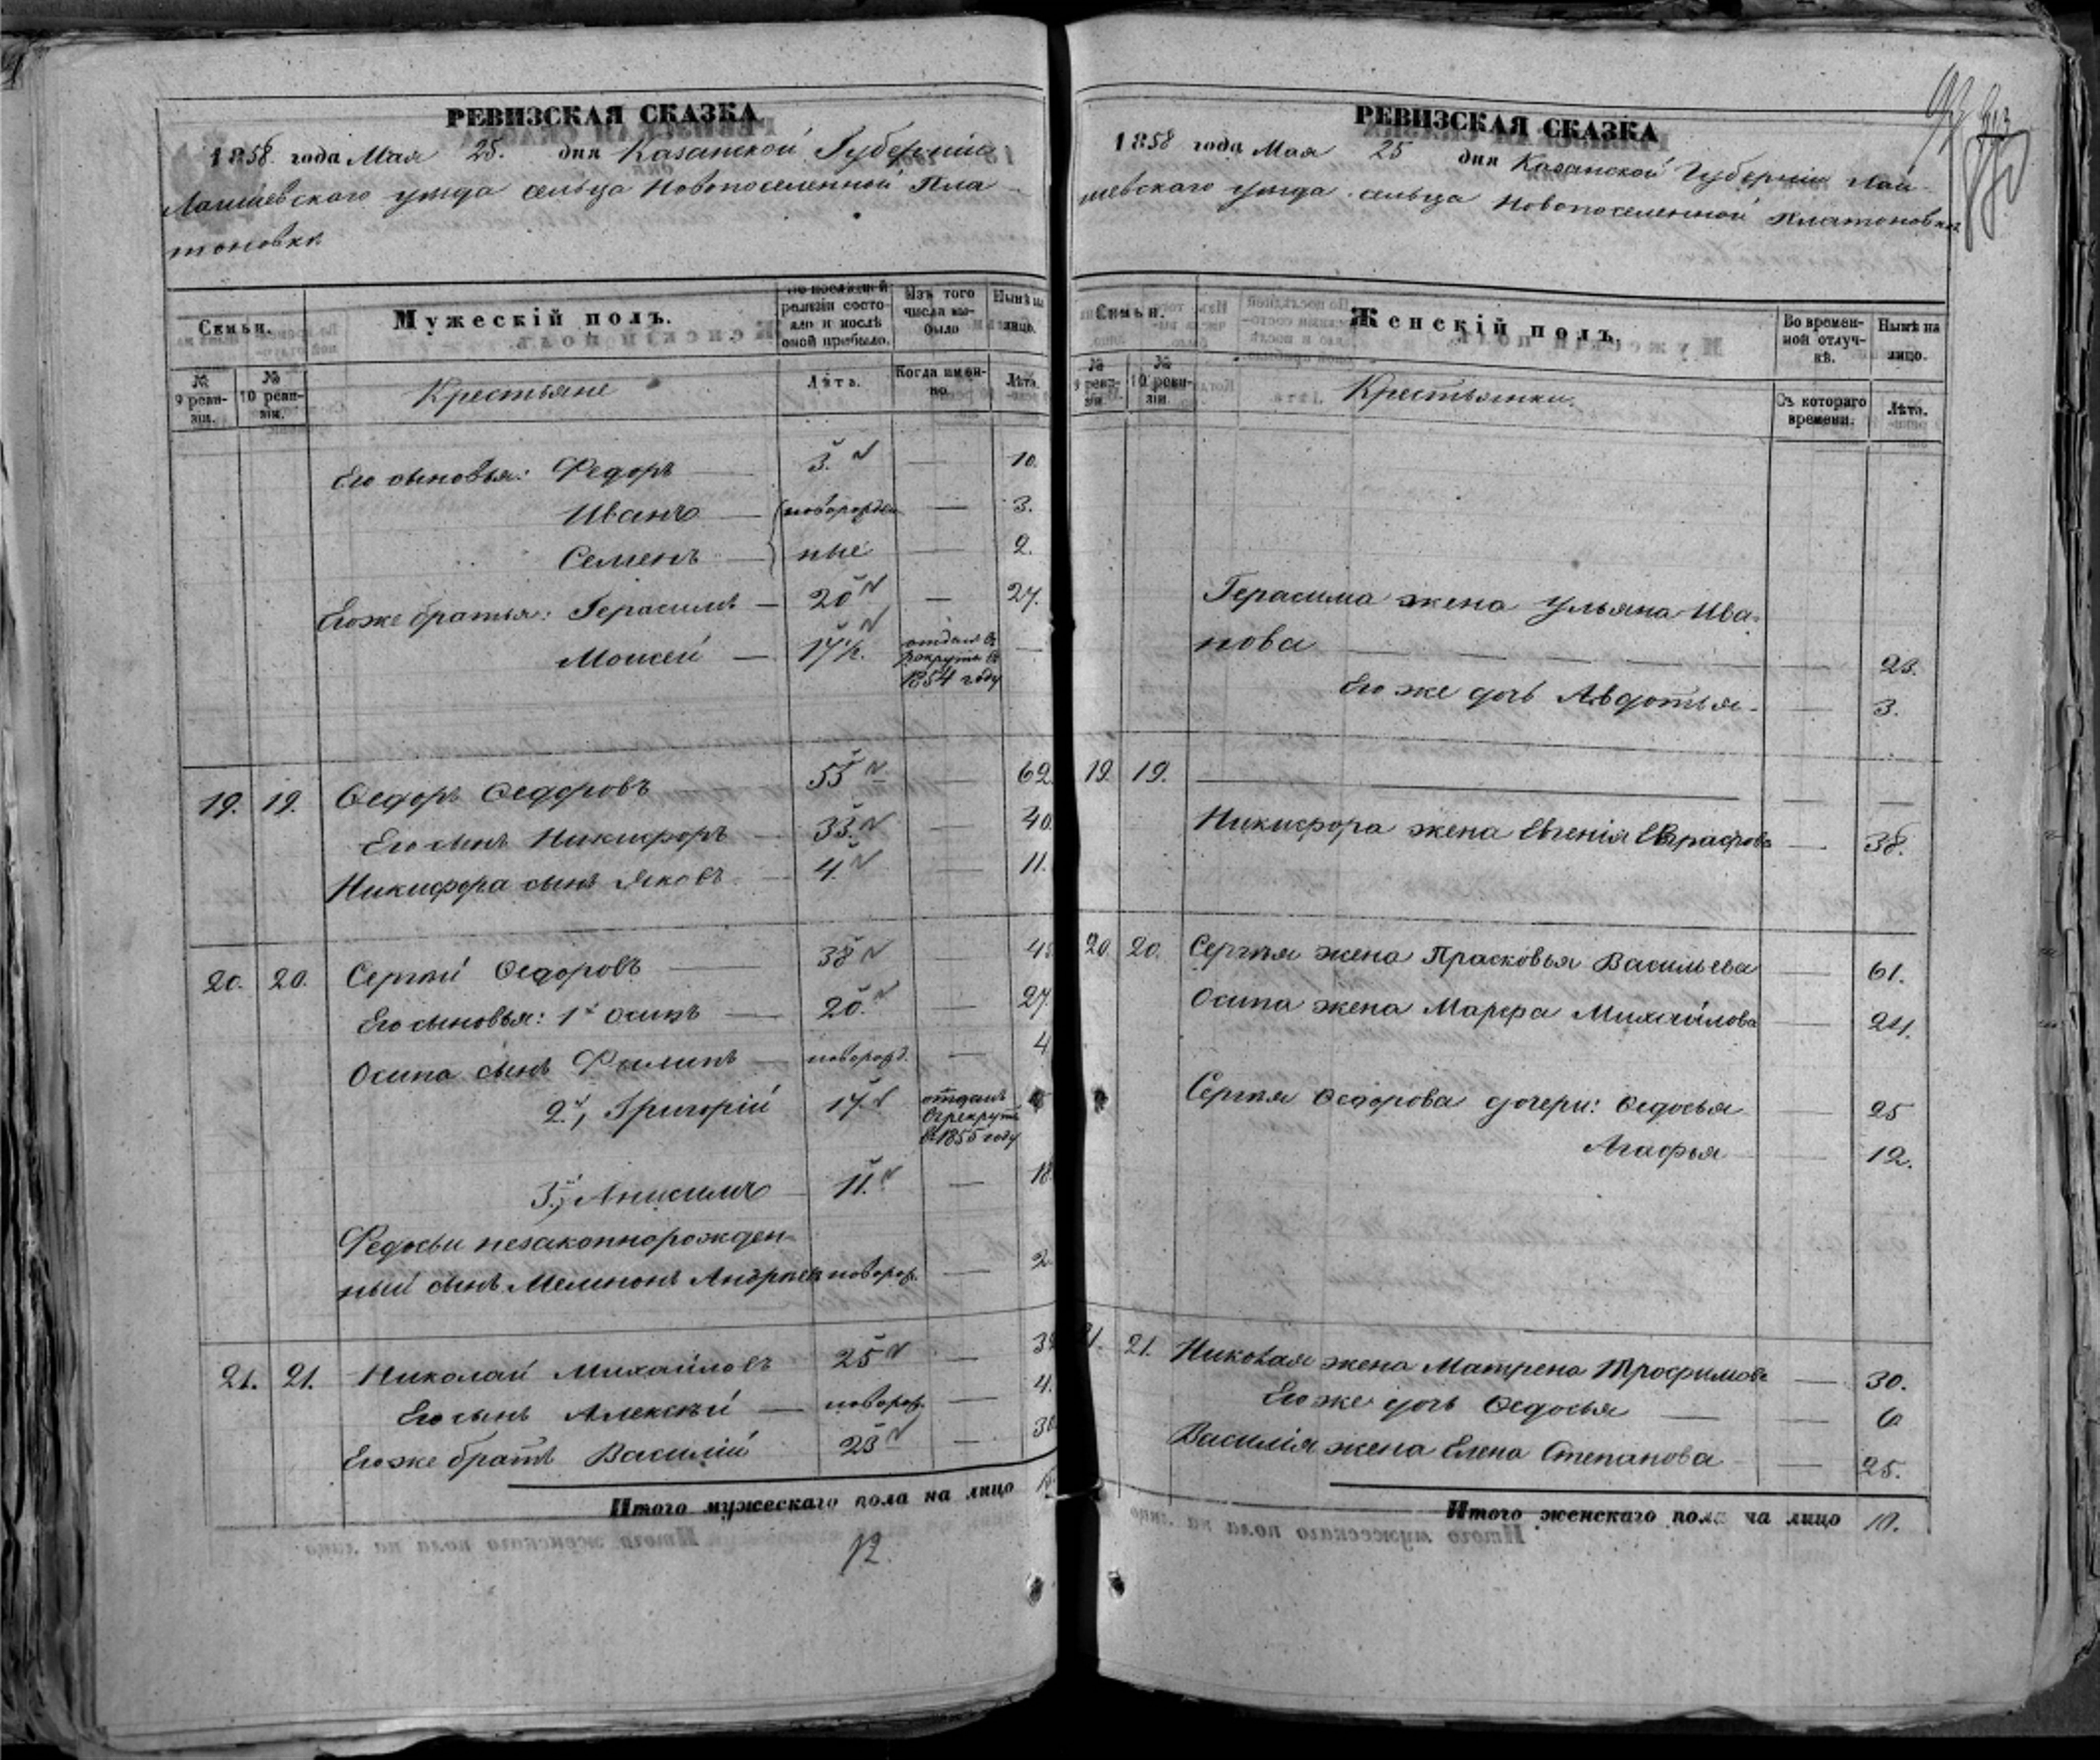 РЕВИЗСКАЯ СКАЗКА
1858 года Мая 25. дня Казанской Губерніи
Лаишевскаго уѣзда сельца Новопоселенной Пла
тоновки
Семьи.
Мужескій полъ.
По послѣдней ревизіи состояло и послѣ оной прибыло.
Изъ того числа выбыло
Нынѣ на лицо.
№ 9 ревизіи.
№ 10 ревизіи.
Крестьяне
Лѣта.
Когда именно.
Лѣта.
Его сыновья: Федоръ — 3. — 10.
Иванъ — новорожден — 3.
Семенъ — ные — 2.
Его же братья: Герасимъ — 20 — 27.
Моисей — 17½. отданъ въ рекруты въ 1854 году —
19. 19. Ѳедоръ Ѳедоровъ 55 — 62
Его сынъ Никифоръ — 33. — 40.
Никифора сынъ Яковъ — 4 — 11.
20. 20. Сергѣй Ѳедоровъ — 38 —
Его сыновья: 1й Осипъ — 20. — 27.
Осипа сынъ Филипъ — новорожд. — 4
2й, Григорій 17. отданъ въ рекруты въ 1855 году
3й, Анисимъ — 11. — 18.
Федосьи незаконнорожден
ный сынъ Мемнонъ Андреевъ новорож. — 2
21. 21. Николай Михайловъ 25 —
Его сынъ Алексѣй — новорож. — 4.
Его же братъ Василій 23 — 30
Итого мужескаго пола на лицо
12.
РЕВИЗСКАЯ СКАЗКА
1858 года Мая 25 дня Казанской Губерніи Лаи
шевскаго уѣзда сельца Новопоселенной Платоновки
Семьи.
Женскій полъ.
Во временной отлучкѣ.
Нынѣ на лицо.
№ 9 ревизіи.
№ 10 ревизіи.
Крестьянки.
Съ котораго времени.
Лѣта.
Герасима жена Ульяна Ива
нова — 23.
Его же дочь Авдотья — 3.
19. 19. — — —
Никифора жена Евгенія Евграфова — 38.
20. 20. Сергѣя жена Прасковья Васильева — 61.
Осипа жена Марфа Михайлова — 24.
Сергѣя Ѳедорова дочери: Ѳедосья — 25
Агафья — 12.
21. Николая жена Матрена Трофимова — 30.
Его же дочь Ѳедосья — 6
Василія жена Елена Степанова — 25.
Итого женскаго пола на лицо 10.